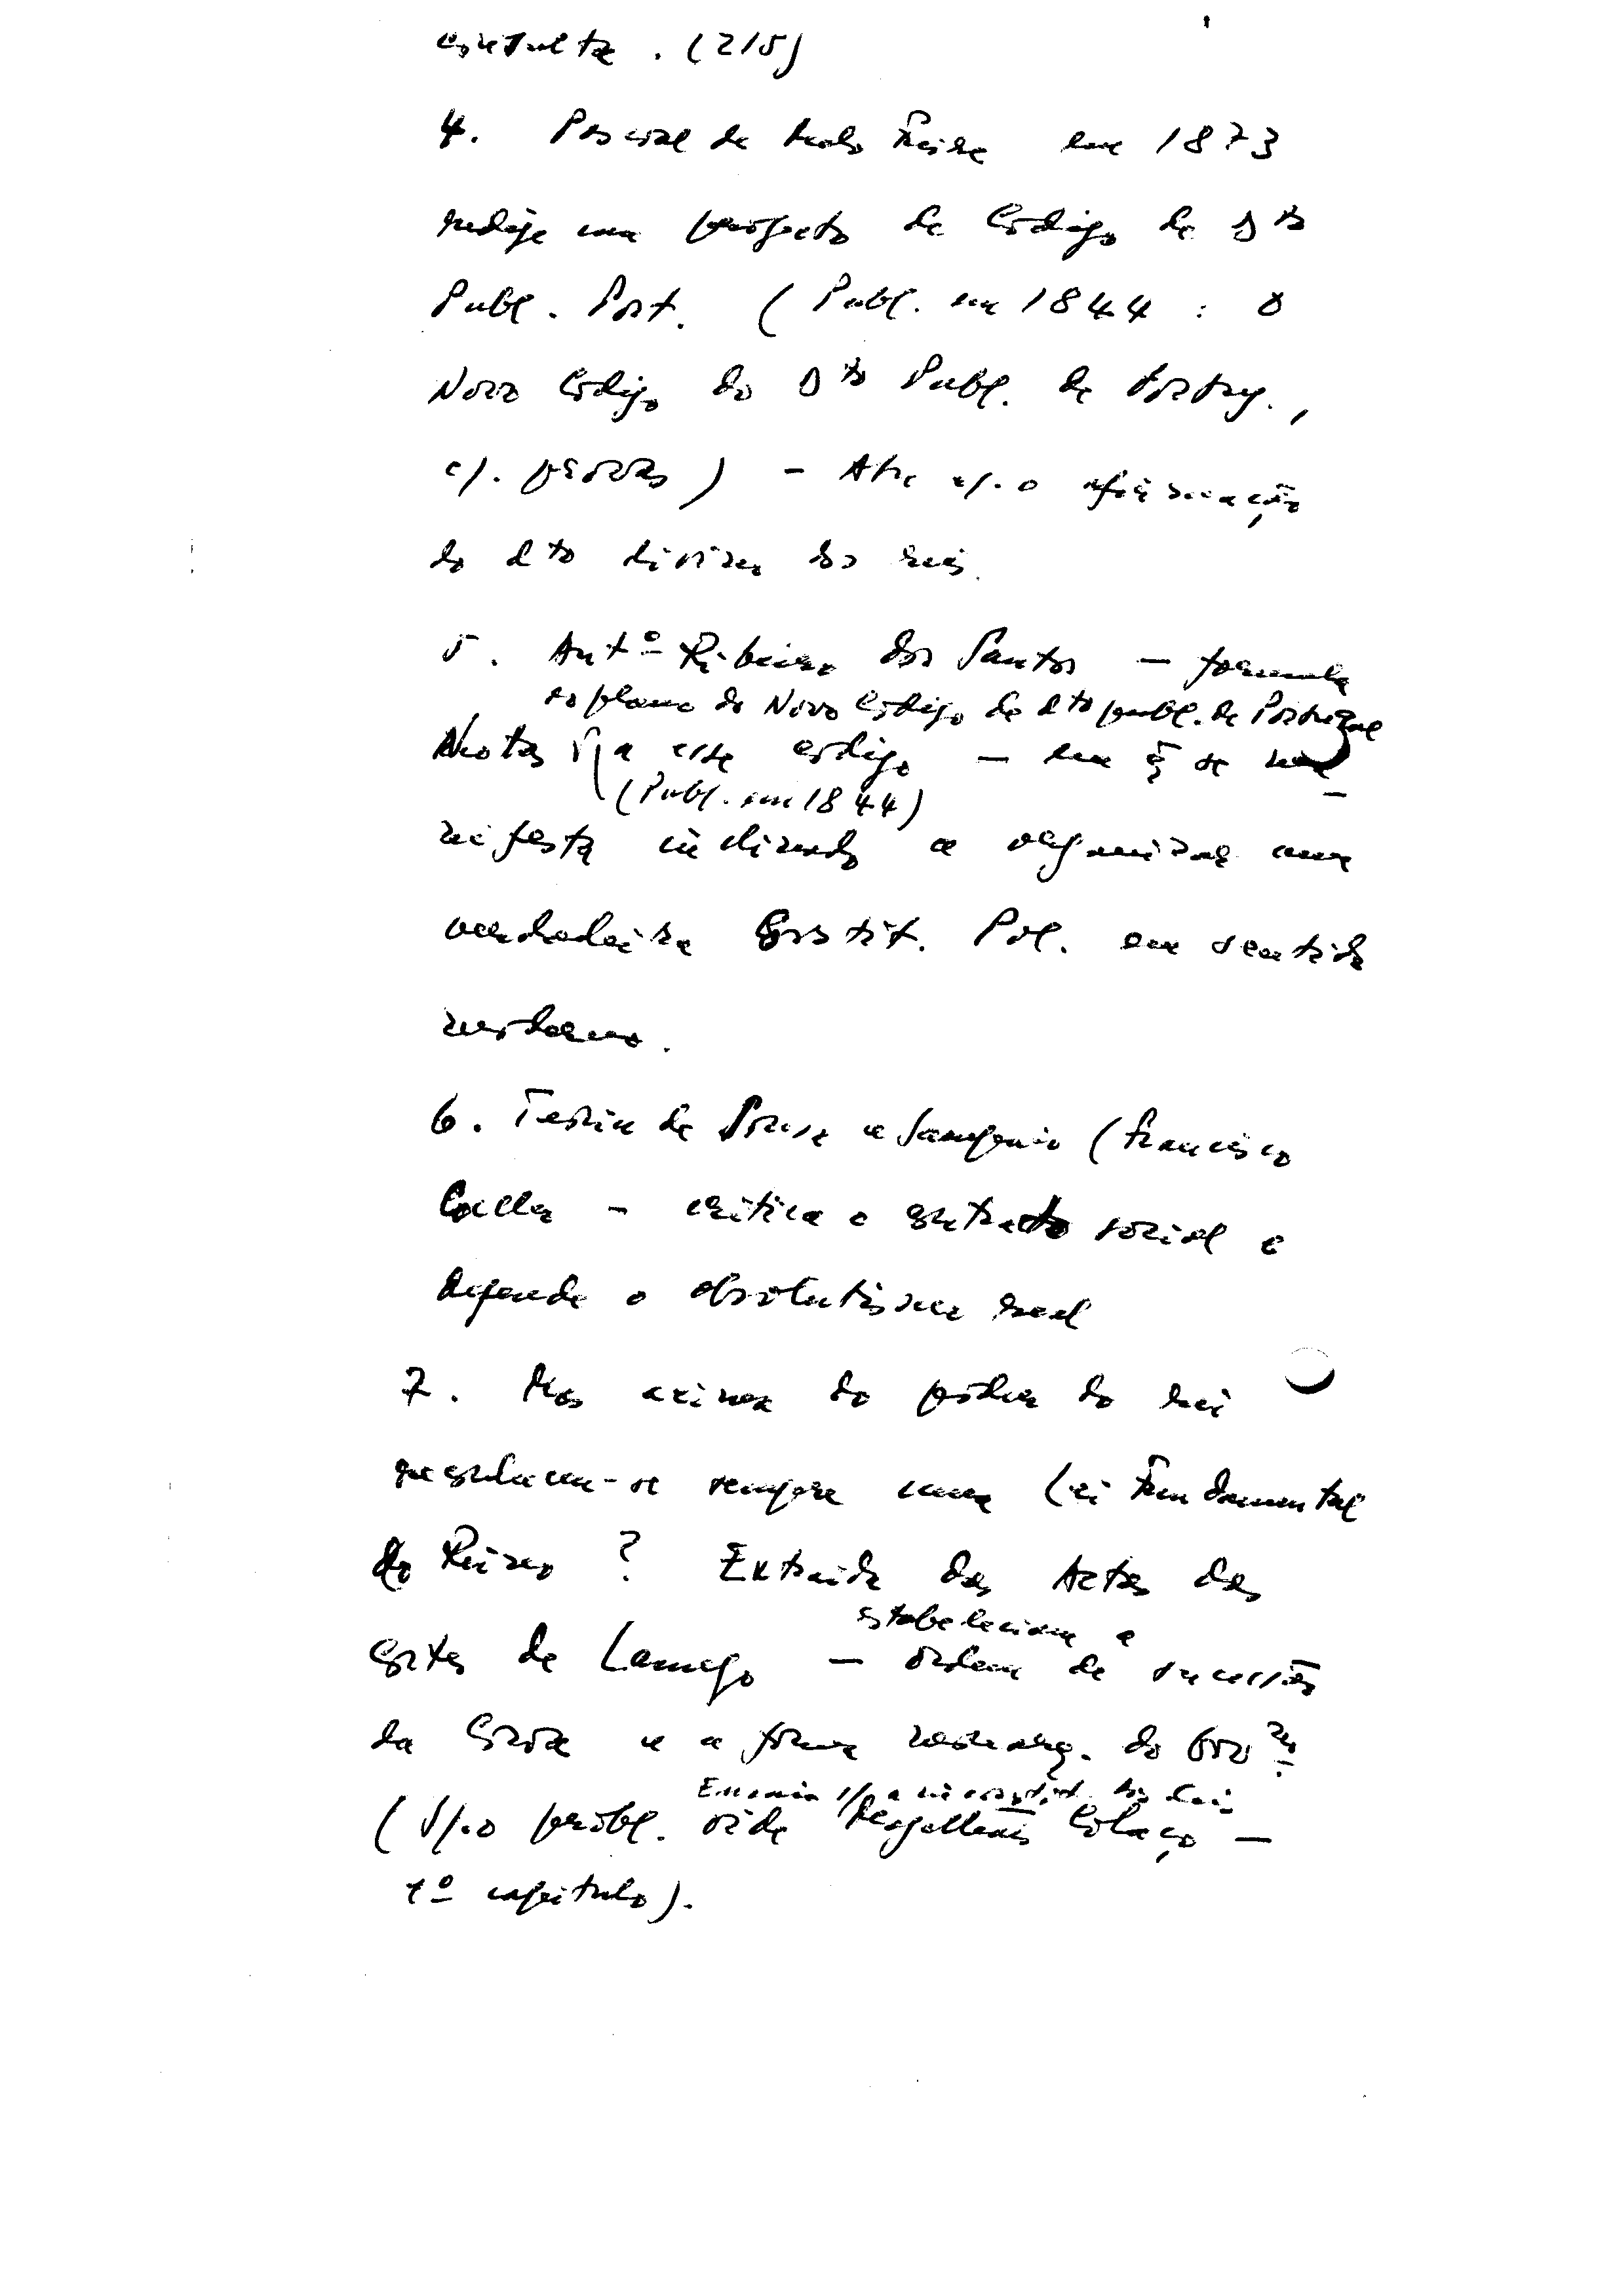 consulta. (215)
4. Pascoal de Melo Freire em 1873
redige um projecto de Código de Dto
Publ. Port. (Publ. em 1844: O
Novo Código do Dto Publ. de Portug.,
c/. provas) - Abre c/. a afirmação
do dto divino dos reis.
5. Antº Ribeiro dos Santos - formula
ao plano do Novo Código de dto publ. de Portugal
Notas a esse código - em q̃ se ma-
(Publ. em 1844)
nifesta inclinado a organizar uma
verdadeira Constit. Pol. em sentido
moderno.
6. Faria de Sousa e Sampaio (Francisco
Coelho - critica o contracto social e
defende o absolutismo real
7. Mas acima do poder do rei
reconhecem-se sempre uma Lei Fundamental
do Reino? Extraída das Actas das
estabeleciam a
Cortes de Lamego - ordem de sucessão
da Coroa e a forma monarq. do Govno
(S/.o probl. vide Magalhães Colaço -
1º capítulo).